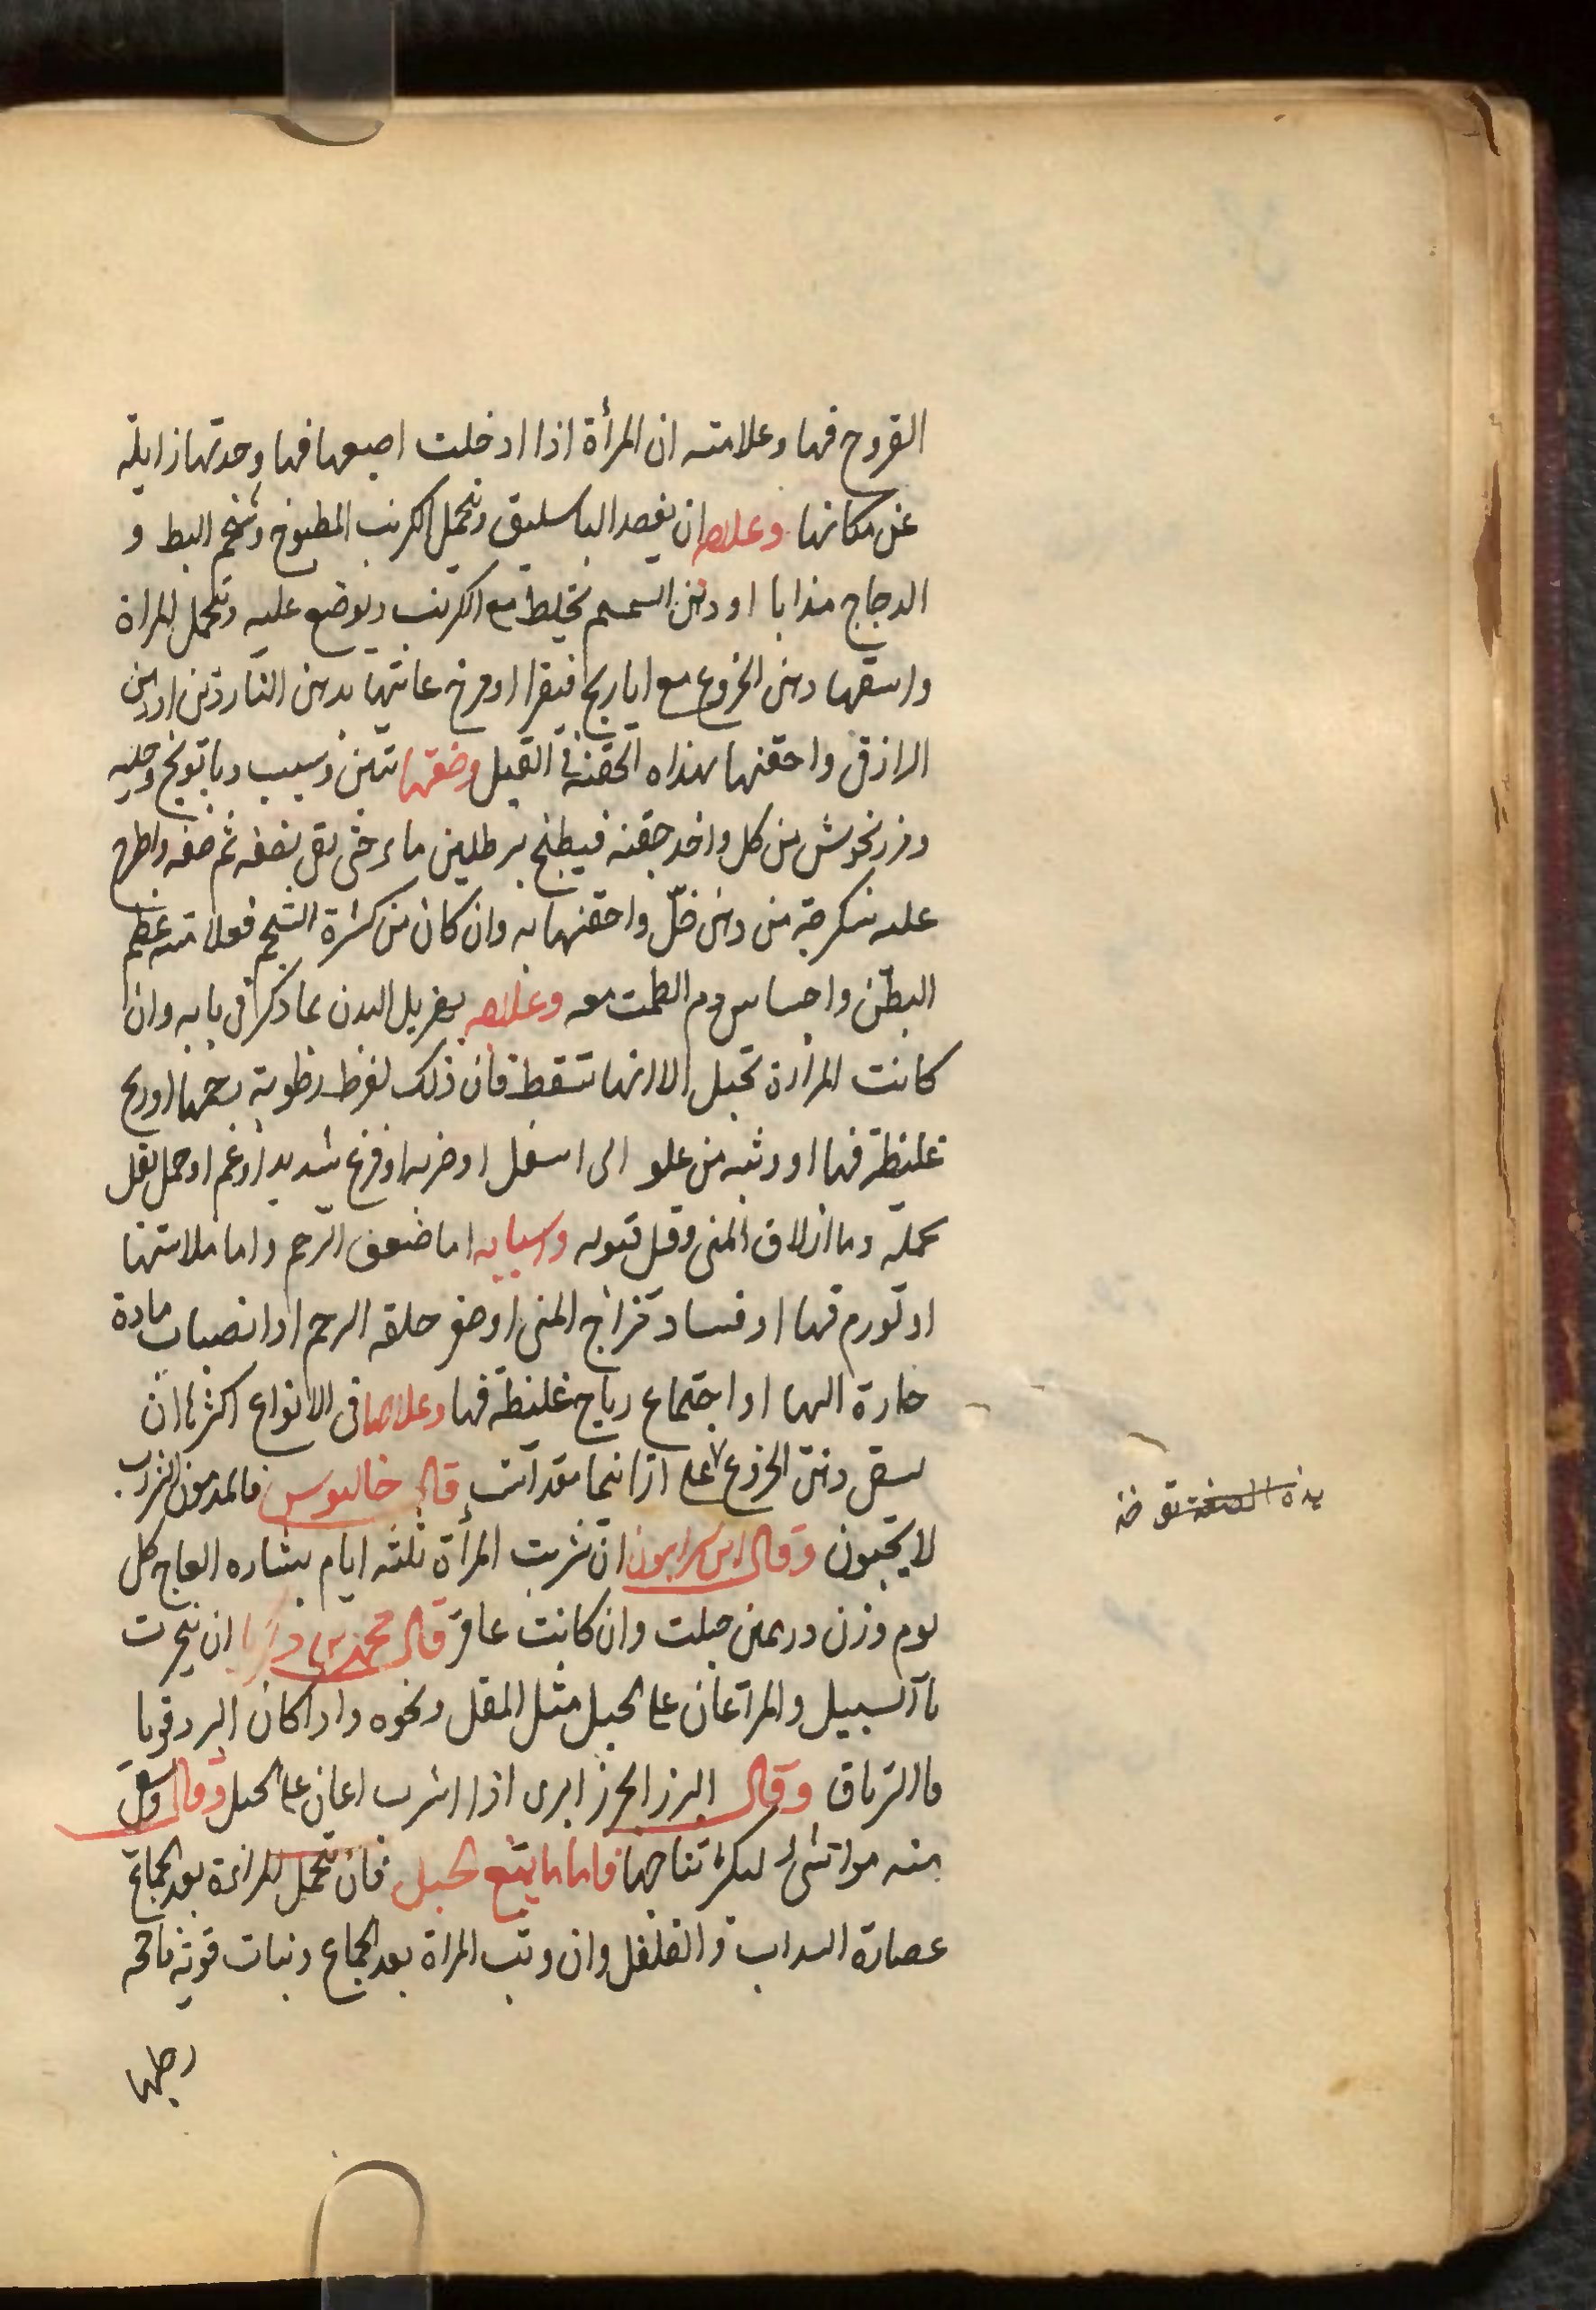 القروح فيها وعلامته ان المرأة اذا ادخلت اصبعها فيها وجدتها زايلة
عن مكانها وعلاجه ان يفصد الباسليق وتحمل الكرنب المطبوخ وشحم البط و
الدجاج مذابا او دهن السمسم تخلط مع الكرنب ويوضع عليه وتحمل المراة
واسقها دهن الخروع مع ايارج فيقرا او مرخ عانتها بدهن الناردين او دهن
الرازقي واحقنها بهذاه الحقنة في القبل وصفتها تين وسبب وبابونج وحلبه
ومرزنخوش من كل واحد حفنه فيطبخ برطلين ماء حتى يقى نصفه ثم صفه واطرح
عليه سكرجة من دهن خل واحقنها به وان كان من كثرة الشحم فعلامته عظم
البطن واحتباس دم الطمث معه وعلاجه بهزيل البدن بما ذكر فى بابه وان
كانت المرأة تحبل الا انها تسقط فان ذلك لفرط رطوبة رحمها او ريح
غليظة فيها او وثبه من علو الى اسفل او ضربه او فزع شديد او غم او حمل ثقل
بحمله وما ازلاق المنى وقل قبوله واسبابه اما ضعف الرحم واما ملاستها
او تورم فيها او فساد مزاج المنى او صغر حلقه الرحم او انصباب مادة
حارة اليها او اجتماع رياح غليظة فيها وعلاجها فى الانواع اكثرها ان
يسقى دهن الخروع على قال جالينوس فالمدمون الشراب
لا يحبون وقال ابن سرابيون ان شربت المرأة ثلثه ايام بنشاره العاج كل
يوم وزن درهمين حبلت وان كانت عاقر قال محمد بن زكريا ان بخرت
السبيل والمر اعان على الحبل مثل المقل ونحوه واذا كان البرد قويا
فالترياق وقال البزر الجزر البرى اذا اشرب اعان على الحبل وقال
منه مواشى ليكثر تناجها فاما ما يمنع الحبل فان تحمل المراة بعد الجماع
عصارة السداب والفلفل وان وثبت المراة بعد الجماع وثبات قوية
رحلها
هذه الصفة